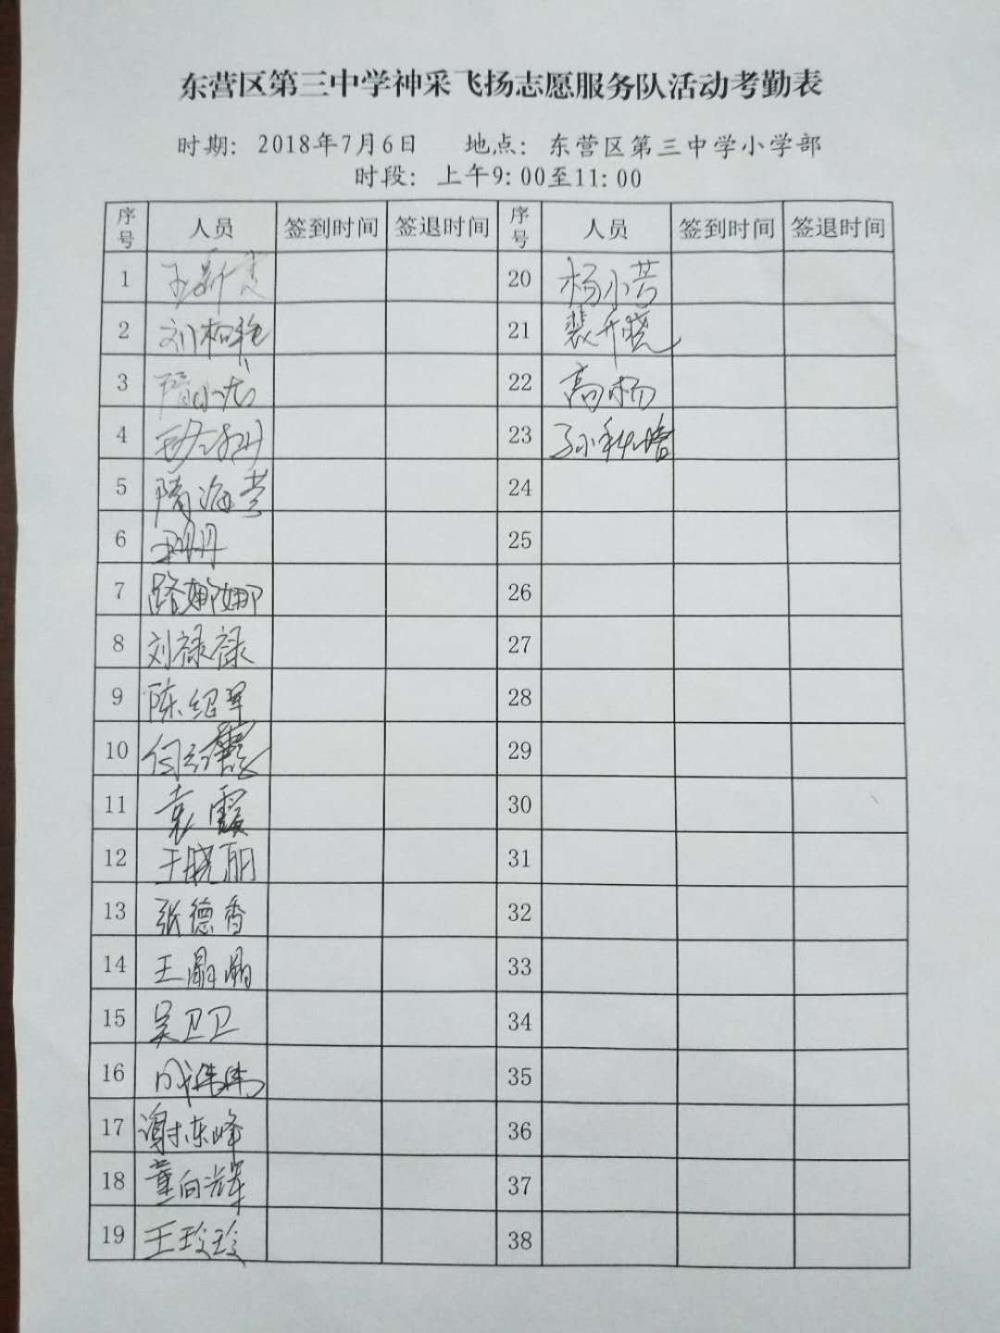 东营区第三中学神采飞扬志愿服务队活动考勤表
时期：2018年7月6日 地点：东营区第三中学小学部
时段：上午9：00至11：00
序号 人员 签到时间 签退时间 序号 人员 签到时间 签退时间
1 20 杨小芳
2 刘柏艳 21 裴升晓
3 22 高杨
4 23 孙秋培
5 隋海营 24
6 25
7 路娜娜 26
8 刘禄禄 27
9 陈绍军 28
10 29
11 袁霞 30
12 王晓丽 31
13 张德香 32
14 王晶晶 33
15 吴卫卫 34
16 成伟伟 35
17 谢东峰 36
18 董向辉 37
19 王玲玲 38